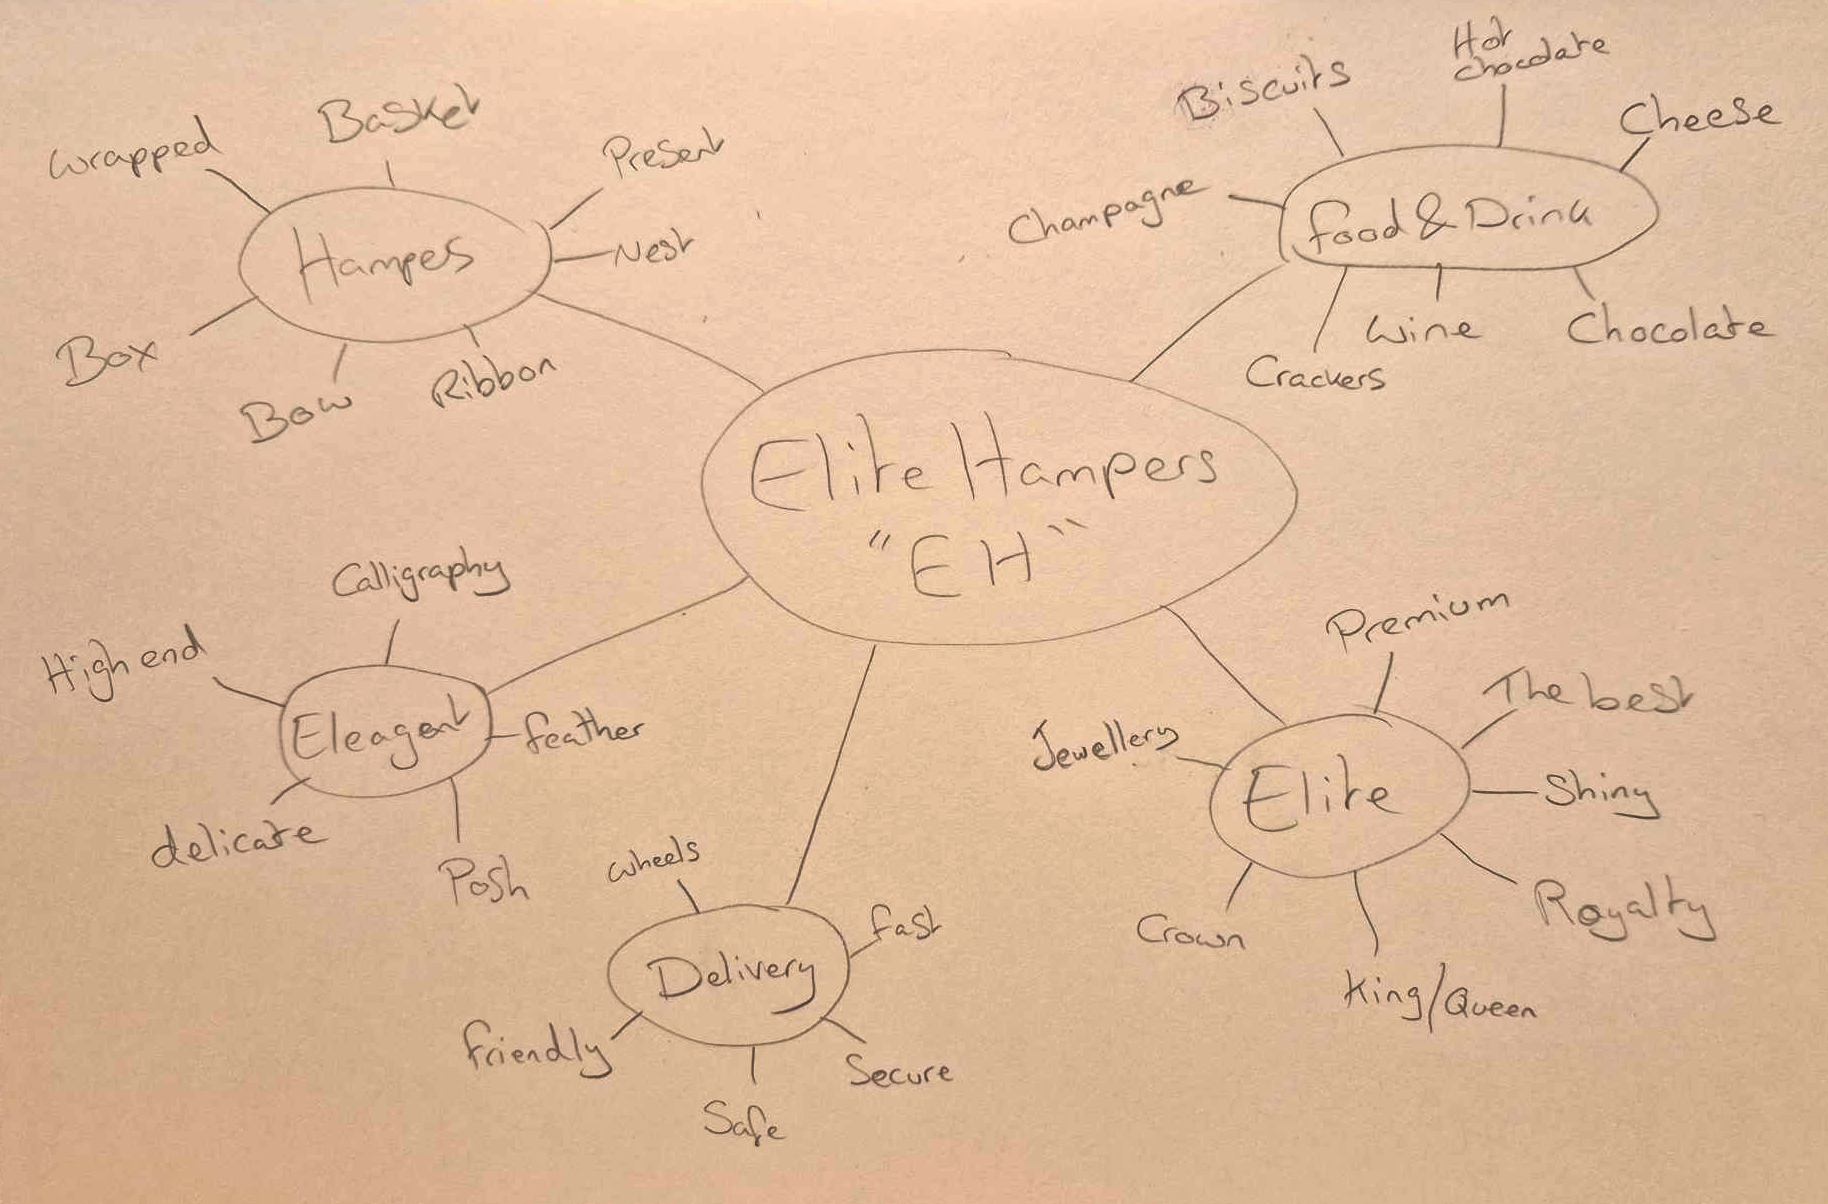 Hampes
Wrapped
Basket
Present
Nest
Ribbon
Bow
Box
Food & Drink
Champagne
Biscuits
Hot
chocolate
Cheese
Chocolate
Wine
Crackers
Elite Hampers
"EH"
Eleagent
High end
Calligraphy
feather
Posh
delicate
Delivery
wheels
fast
Secure
Safe
friendly
Elite
Jewellery
Premium
The best
Shiny
Royalty
King/Queen
Crown